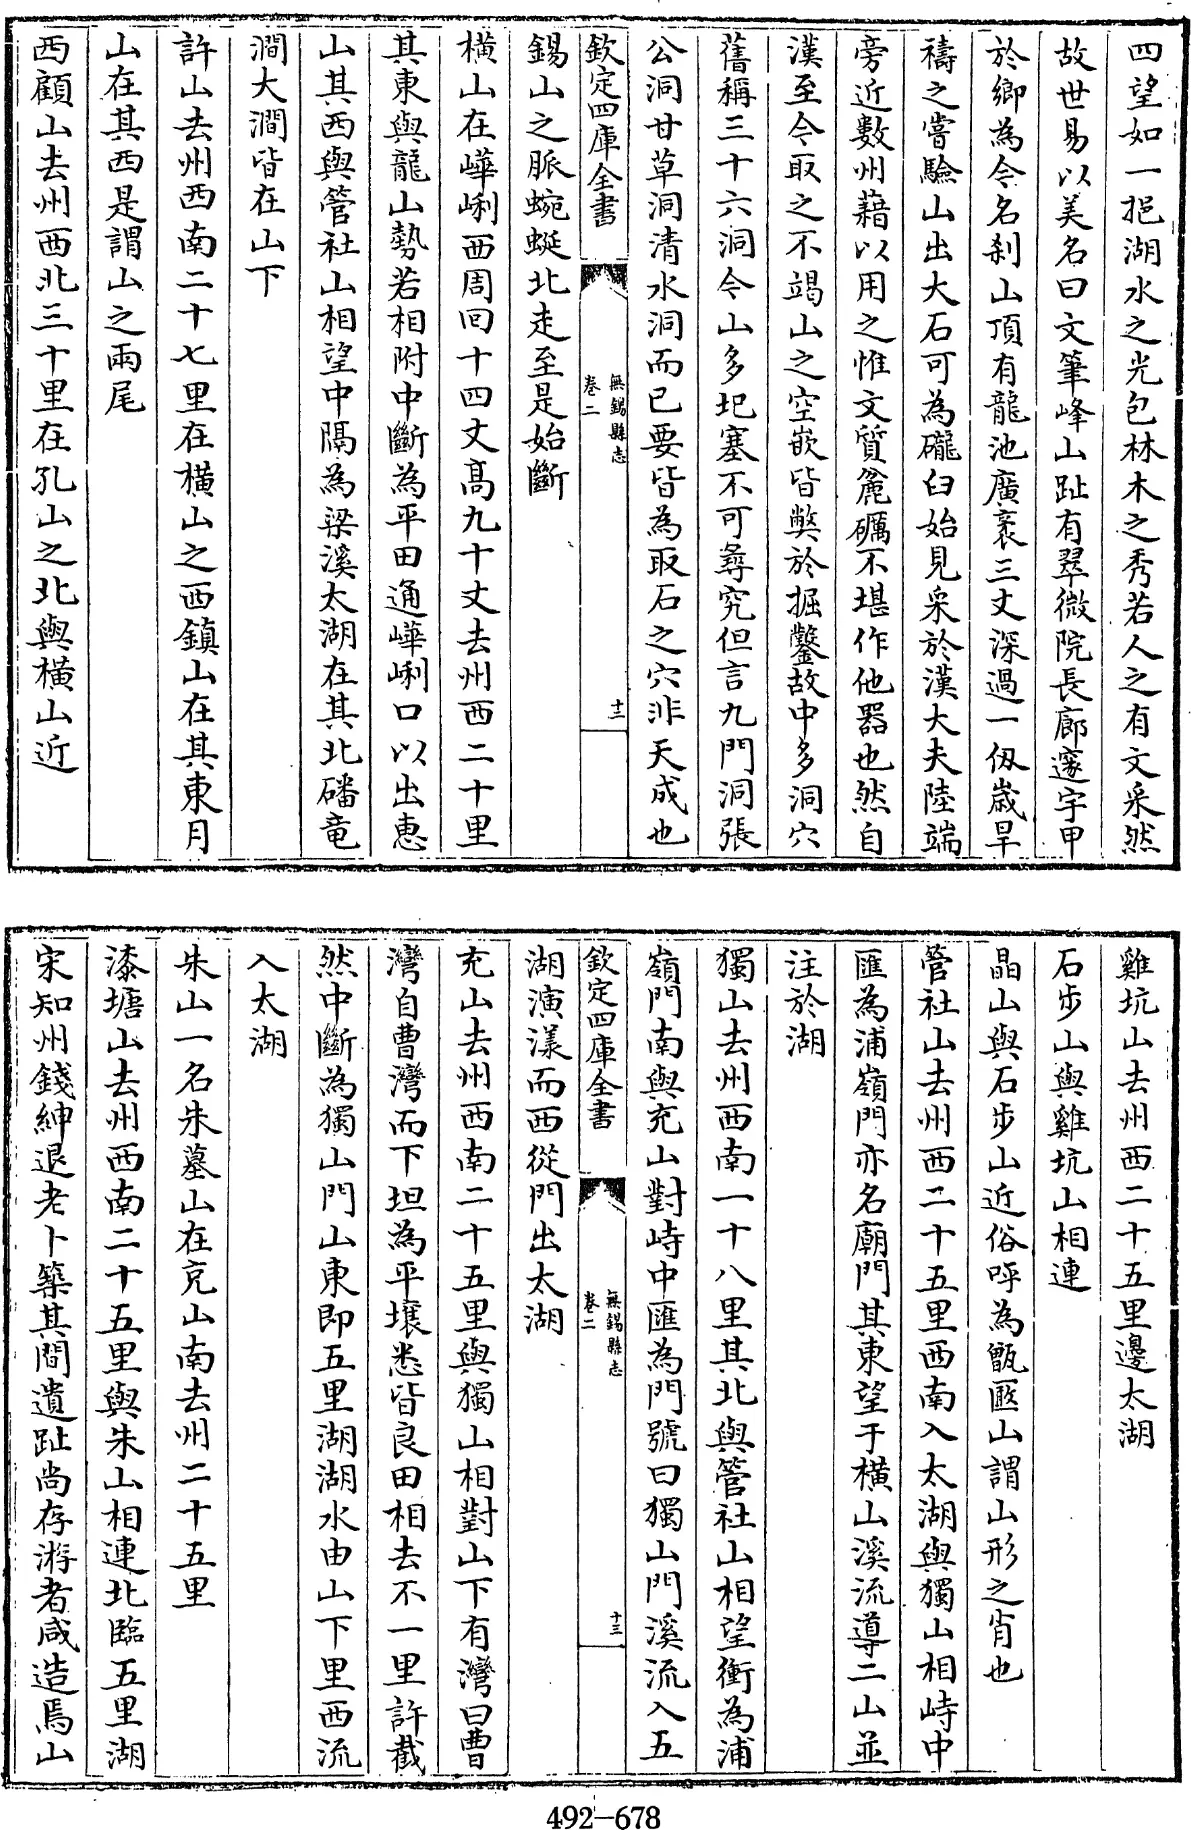 四望如一挹湖水之光包林木之秀若人之有文采然
故世易以美名曰文筆峰山趾有翠微院長廊邃宇甲
於鄉為今名刹山頂有龍池廣袤三丈深過一仭嵗旱
禱之嘗驗山出大石可為礲臼始見采於漢大夫陸端
旁近數州藉以用之惟文質麄礪不堪作他器也然自
漢至今取之不竭山之空嵌皆斃於掘鑿故中多洞穴
舊稱三十六洞今山多圯塞不可尋究但言九門洞張
公洞甘草洞清水洞而已要皆為取石之穴非天成也
欽定四庫全書
無錫縣志
卷二
十三
錫山之脈蜿蜒北走至是始斷
橫山在嶂峢西周回十四丈髙九十丈去州西二十里
其東與龍山勢若相附中斷為平田通嶂峢口以出恵
山其西與管社山相望中隔為梁溪太湖在其北磻竜
澗大澗皆在山下
許山去州西南二十七里在橫山之西鎮山在其東月
山在其西是謂山之兩尾
西顧山去州西北三十里在孔山之北與橫山近
雞坑山去州西二十五里邊太湖
石步山與雞坑山相連
晶山與石步山近俗呼為甑匳山謂山形之肖也
管社山去州西二十五里西南入太湖與獨山相峙中
匯為浦嶺門亦名廟門其東望于橫山溪流導二山並
注於湖
獨山去州西南一十八里其北與管社山相望衝為浦
嶺門南與充山對峙中匯為門號曰獨山門溪流入五
欽定四庫全書
無錫縣志
卷二
十三
湖演漾而西從門出太湖
充山去州西南二十五里與獨山相對山下有灣曰曹
灣自曹灣而下坦為平壤悉皆良田相去不一里許截
然中斷為獨山門山東即五里湖湖水由山下里西流
入太湖
朱山一名朱墓山在充山南去州二十五里
漆塘山去州西南二十五里與朱山相連北臨五里湖
宋知州錢紳退老卜築其間遺趾尚存游者咸造焉山
492-678